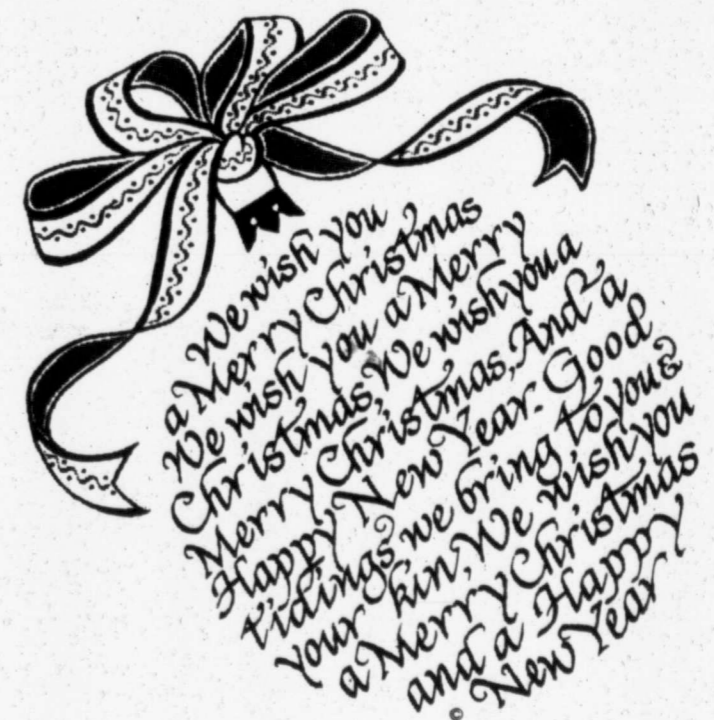 We wish you
a Merry Christmas
We wish you a Merry
Christmas, We wish you a
Merry Christmas, And a
Happy New Year. Good
tidings we bring to you &
your kin, We wish you
a Merry Christmas
and a Happy
New Year
©